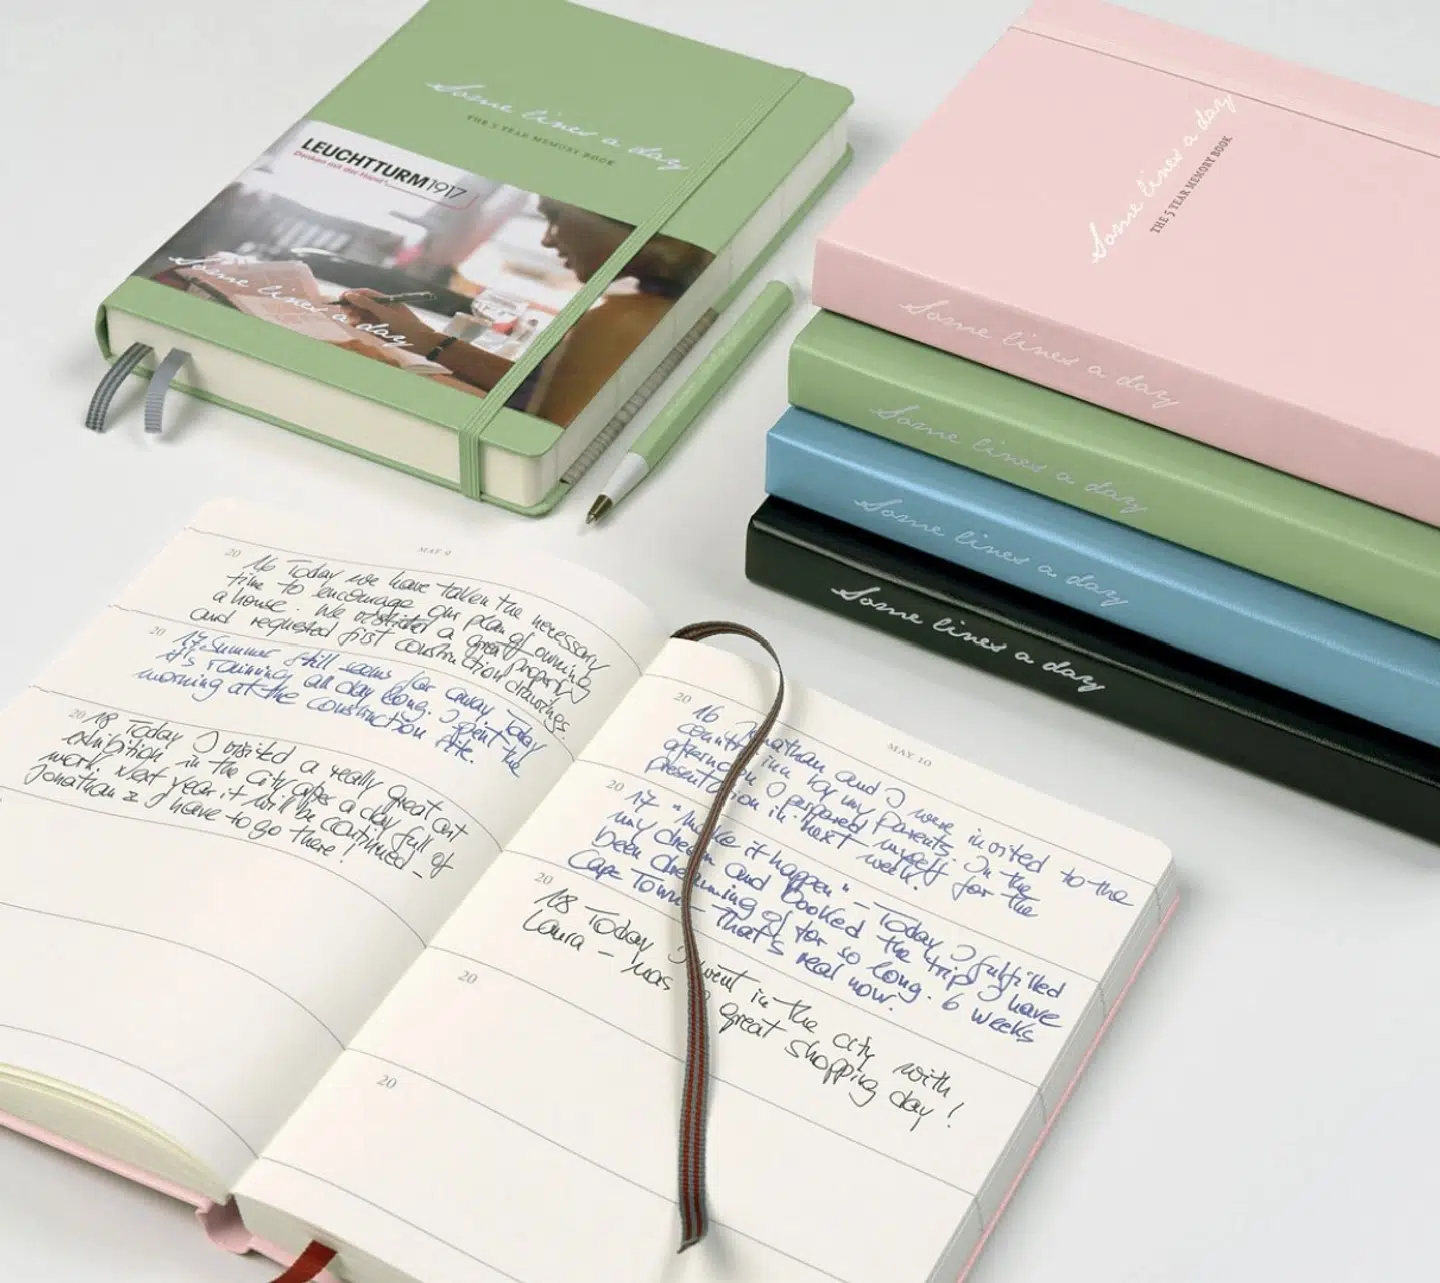 Some lines a day
THE 5 YEAR MEMORY BOOK
LEUCHTTURM1917
Denken mit der Hand
Some lines a day
Some lines a day
THE 5 YEAR MEMORY BOOK
Some lines a day
Some lines a day
Some lines a day
Some lines a day
MAY 9
20 16 Today we have taken the necessary
time to encourage our plan of owning
a house. We visited a great property
and requested first construction drawings.
20 17 Summer still seems far away. Today
it's raining all day long. I spent the
morning at the construction site.
20 18 Today I visited a really great art
exhibition in the city after a day full of
work. Next year it will be continued –
Jonathan & I have to go there!
MAY 10
20 16 Jonathan and I were invited to the
country inn by my parents. In the
afternoon I prepared myself for the
presentation in next week.
20 17 "Make it happen" – Today I fulfilled
my dream and booked the trip I have
been dreaming of for so long. 6 weeks
Cape Town – That's real now.
20 18 Today I went in the city with
Laura – was a great shopping day!
20
20